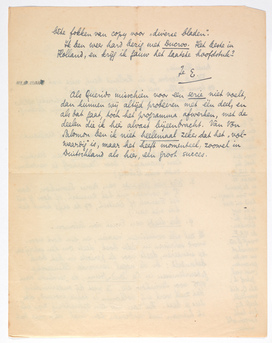 van copy voor "diverse bladen".
Ik ben weer hard bezig met Ducroo. Het beste in
Holland, en krijg ik gauw het laatste hoofdstuk?
Je E
Als Querido misschien voor een serie niet voelt,
dan kunnen zij altijd probeeren met één deel, en
als dat gaat, toch het programma afwerken, met de
deelen die ik hen alvast bijeenbracht. Van Von
Salomon ben ik niet heelemaal zeker dat het
is, maar het heeft momenteel, zoowel in
Deutschland als hier, een groot succes.